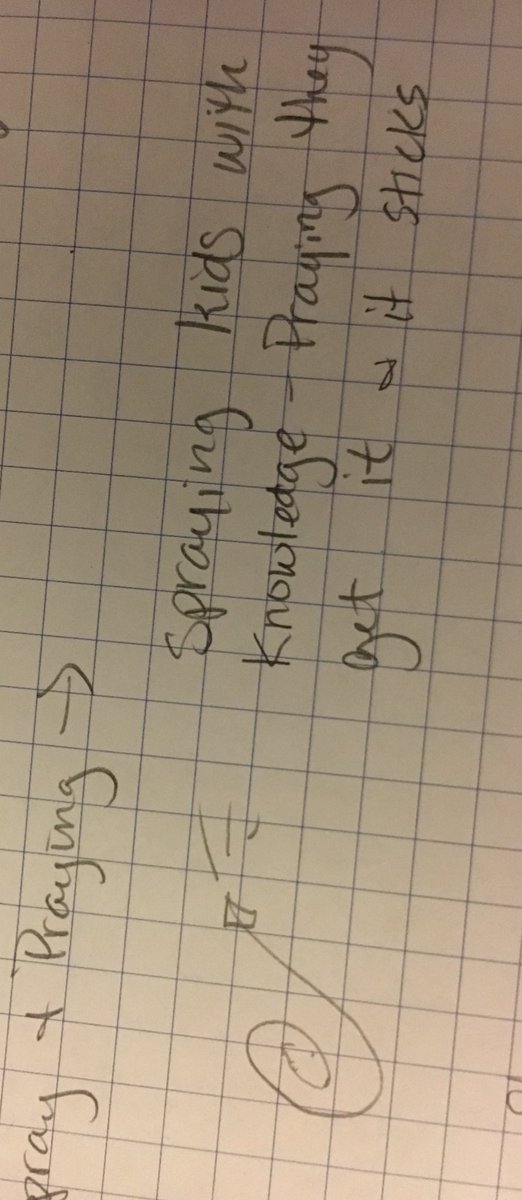 pray + Praying →
Spraying kids with
knowledge - Praying they
get it & it sticks